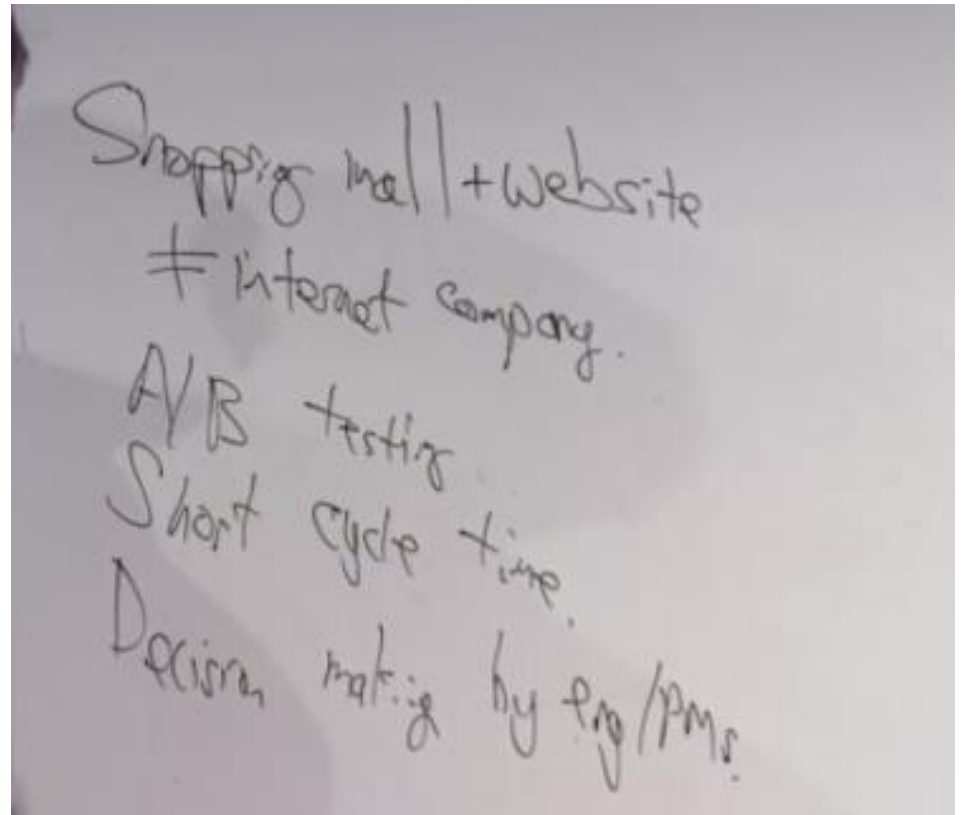 Shopping mall + website
≠ internet company.
A/B testing
Short cycle time.
Decision making by eng/PMs.